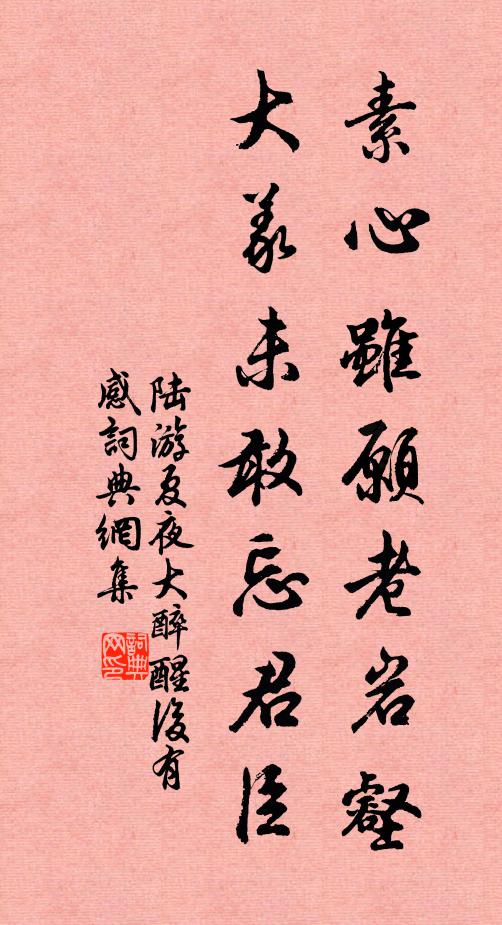 素心雖願老岩壑
大義未敢忘君臣
陆游夏夜大醉醒後有
感詞典網集
詞典網印